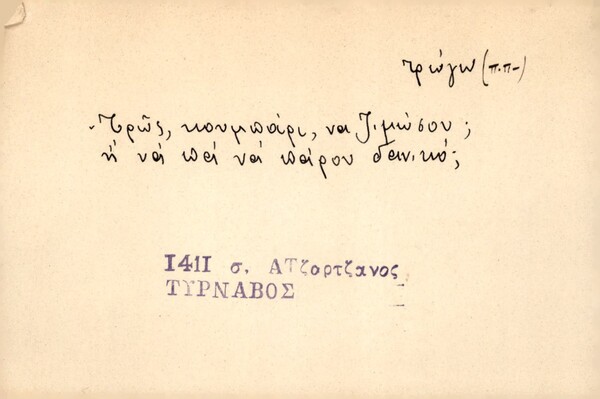 τρώγω (π.π-)
Τρῶς, κουμπάρι, να ζ'μώσου;
ή νά πά νά πάρου δαν'κό;
1411 σ. ΑΤζαρτζανος
ΤΥΡΝΑΒΟΣ